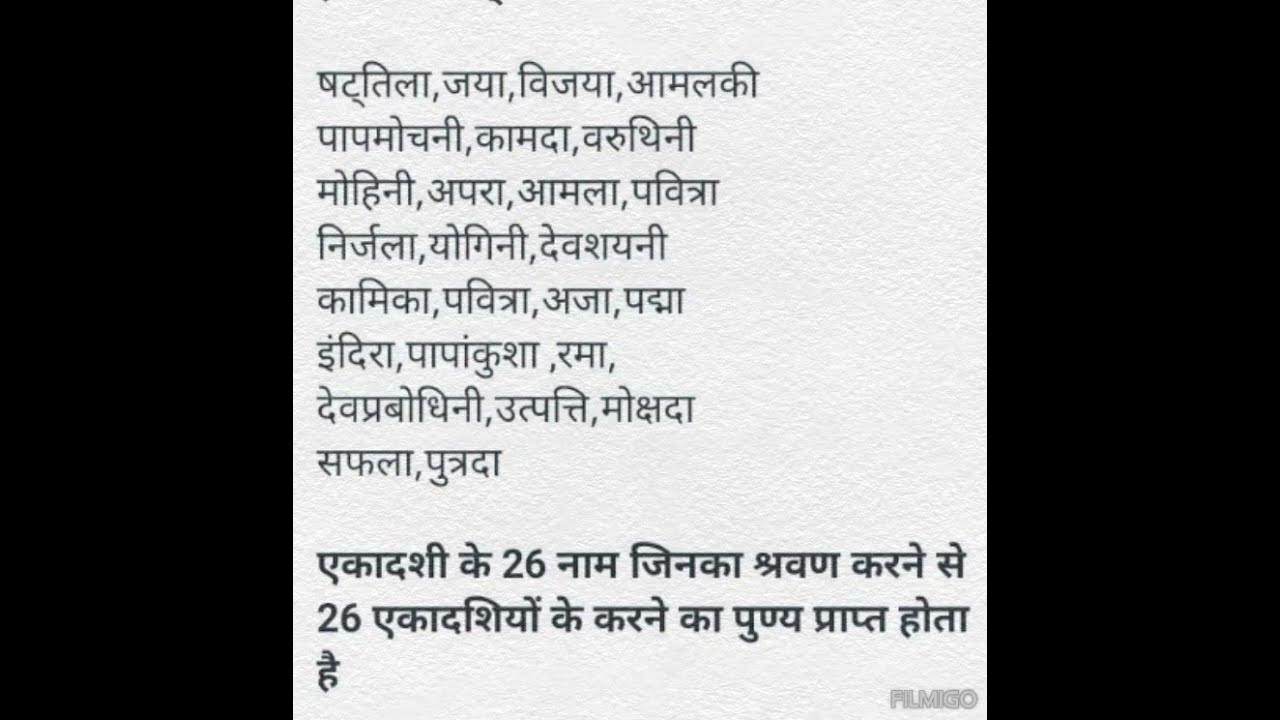 षट्तिला,जया,विजया,आमलकी
पापमोचनी,कामदा,वरुथिनी
मोहिनी,अपरा,आमला,पवित्रा
निर्जला,योगिनी,देवशयनी
कामिका,पवित्रा,अजा,पद्मा
इंदिरा,पापांकुशा ,रमा,
देवप्रबोधिनी,उत्पत्ति,मोक्षदा
सफला,पुत्रदा
एकादशी के 26 नाम जिनका श्रवण करने से
26 एकादशियों के करने का पुण्य प्राप्त होता
है
FILMIGO